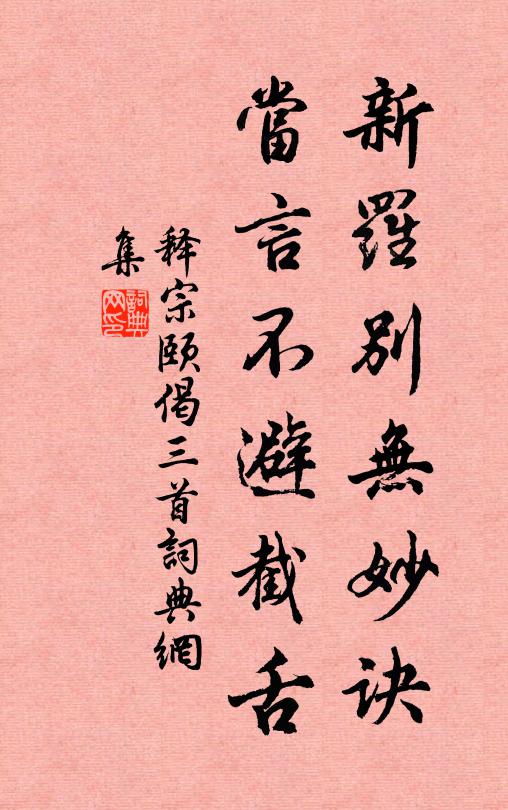 新羅別無妙訣
當言不避截舌
释宗颐偈三首詞典網
集
詞典
网印